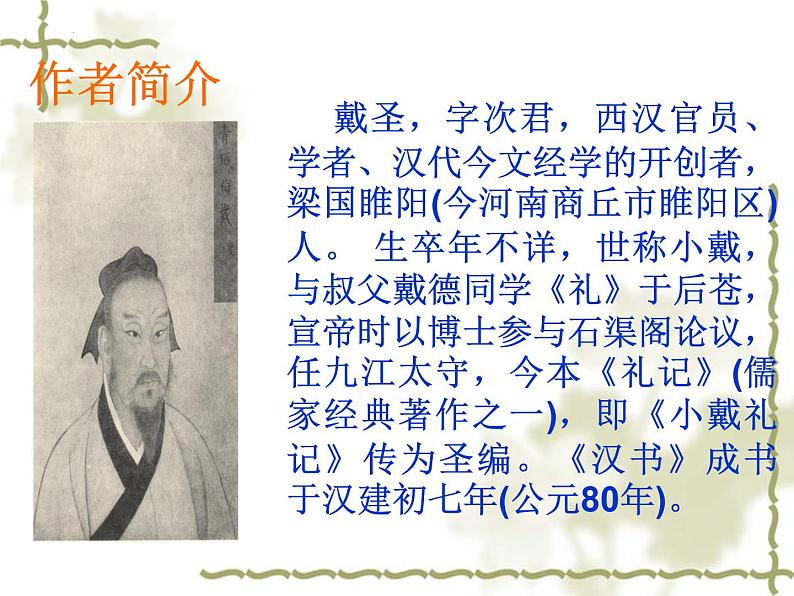 作者简介
戴圣，字次君，西汉官员、
学者、汉代今文经学的开创者，
梁国睢阳(今河南商丘市睢阳区)
人。 生卒年不详，世称小戴，
与叔父戴德同学《礼》于后苍，
宣帝时以博士参与石渠阁论议，
任九江太守，今本《礼记》(儒
家经典著作之一)，即《小戴礼
记》传为圣编。《汉书》成书
于汉建初七年(公元80年)。